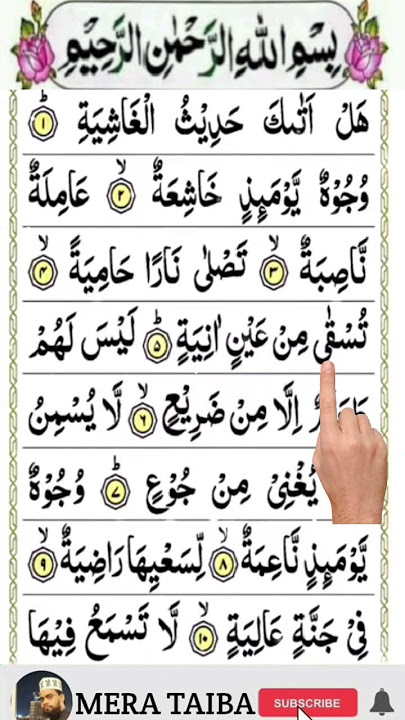 بِسْمِ اللهِ الرَّحْمٰنِ الرَّحِيْمِ
هَلْ اَتٰىكَ حَدِيْثُ الْغَاشِيَةِ ؕ ۱
وُجُوْهٌ يَّوْمَىِٕذٍ خَاشِعَةٌ ۙ ۲ عَامِلَةٌ
نَّاصِبَةٌ ۙ ۳ تَصْلٰى نَارًا حَامِيَةً ۙ ۴
تُسْقٰى مِنْ عَيْنٍ اٰنِيَةٍ ؕ ۵ لَيْسَ لَهُمْ
اِلَّا مِنْ ضَرِيْعٍ ۙ ۶ لَّا يُسْمِنُ
يُغْنِيْ مِنْ جُوْعٍ ؕ ۷ وُجُوْهٌ
يَّوْمَىِٕذٍ نَّاعِمَةٌ ۙ ۸ لِّسَعْيِهَا رَاضِيَةٌ ۙ ۹
فِيْ جَنَّةٍ عَالِيَةٍ ۙ ۱۰ لَّا تَسْمَعُ فِيْهَا
MERA TAIBA SUBSCRIBE